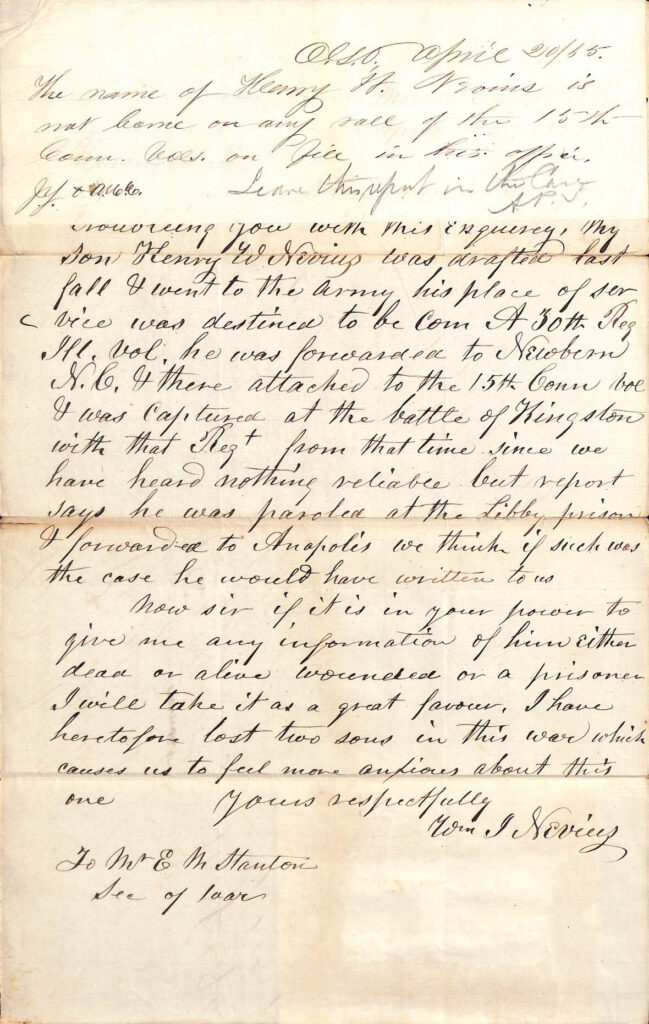 April 20/65.
The name of Henry W. Nevins is
not borne on any roll of the 15th
Conn. Vols. on file in this office.
Leave this report in the Case
troubleing you with this Enquerey, My
son Henry W Nevius was drafted last
fall & went to the army his place of ser
vice was destined to be Com A 30th Reg
Ill. vol. he was forwarded to Newbern
N.C. & there attached to the 15th Conn vol
& was captured at the battle of Kingston
with that Regt from that time since we
have heard nothing reliable but report
says he was paroled at the Libby prison
& forwarded to Anapolis we think if such was
the case he would have written to us
Now sir if it is in your power to
give me any information of him either
dead or alive wounded or a prisoner
I will take it as a great favour. I have
heretofore lost two sons in this war which
causes us to feel more anxious about this
one Yours respectfully
Wm J Nevius
To Mr E M Stanton
Sec of War